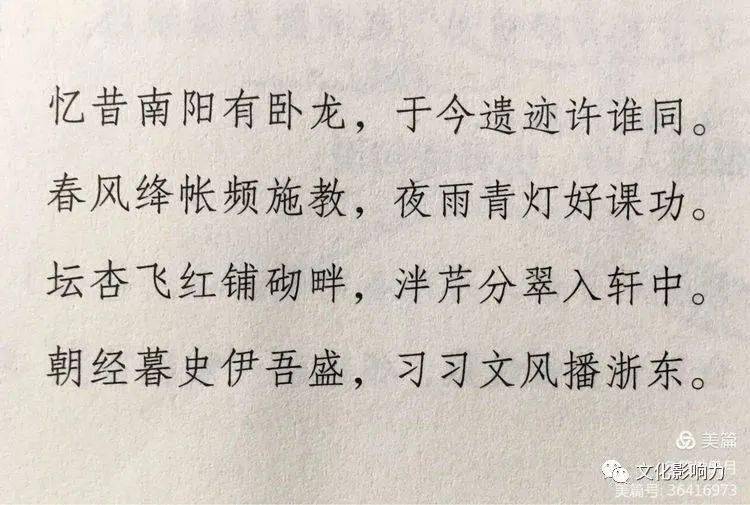 忆昔南阳有卧龙，于今遗迹许谁同。
春风绛帐频施教，夜雨青灯好课功。
坛杏飞红铺砌畔，泮芹分翠入轩中。
朝经暮史伊吾盛，习习文风播浙东。
美篇
文化影响力
月
美篇号: 36416973